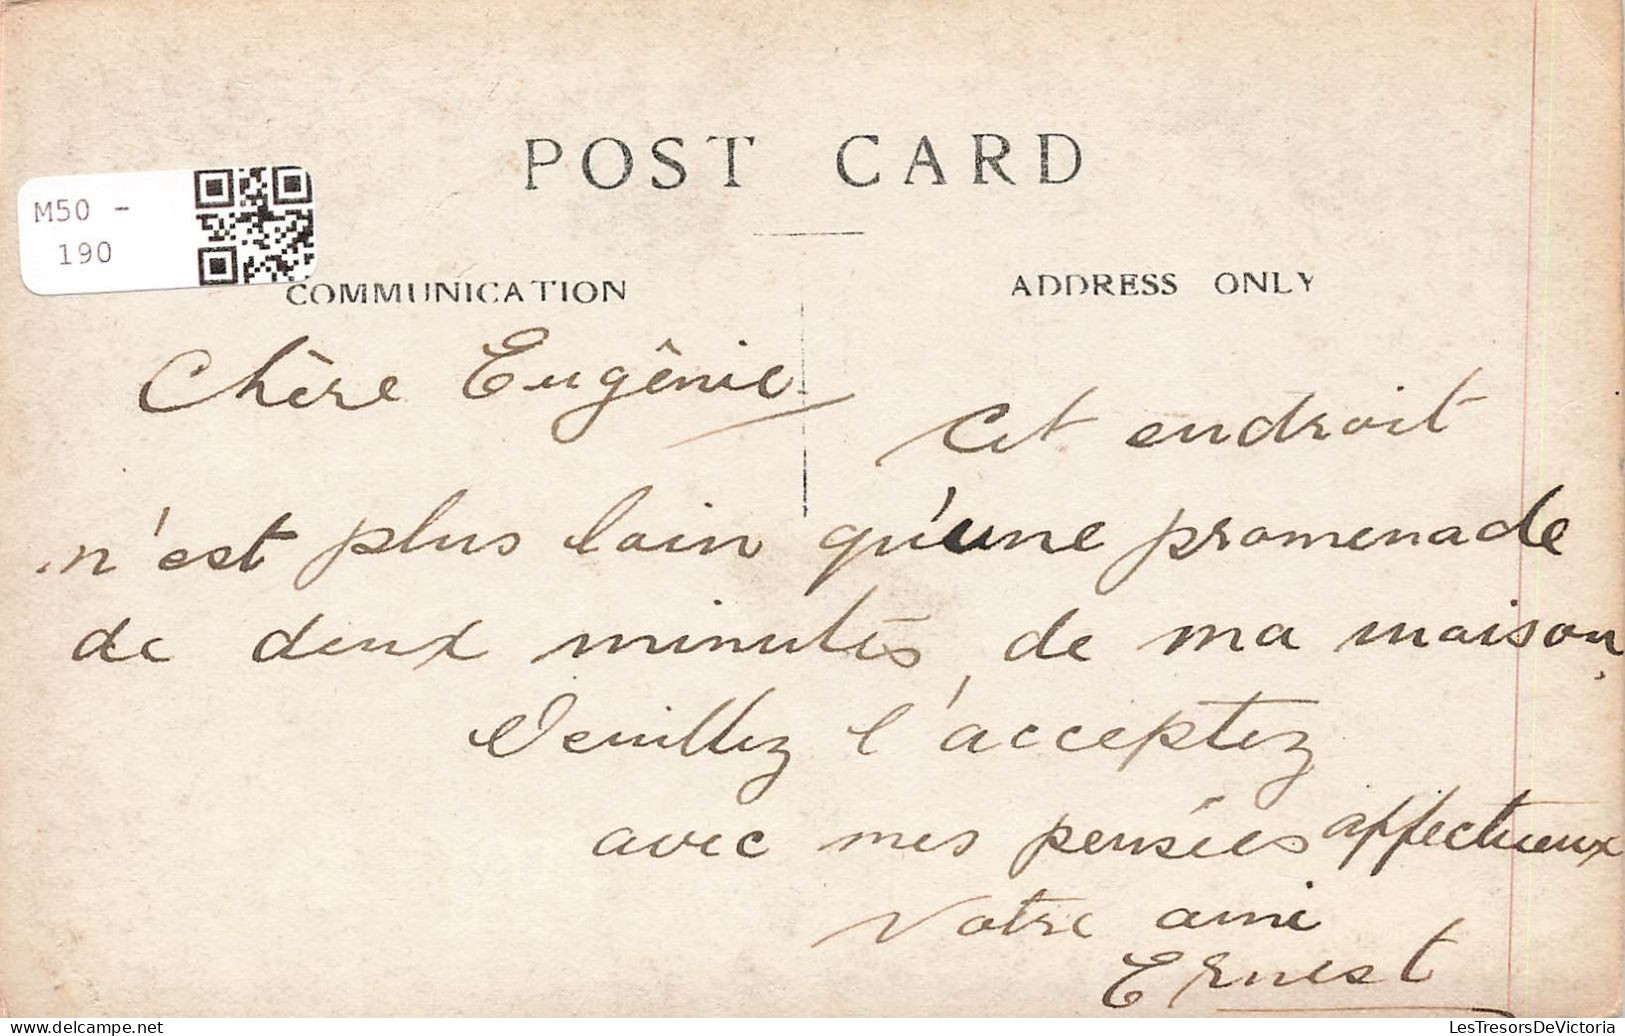 POST CARD
M50 -
190
COMMUNICATION
ADDRESS ONLY
Chère Eugênie
Cet endroit
n'est plus loin qu'une promenade
de deux minutes, de ma maison,
Veuillez l'acceptez
avec mes pensées affectueux
Votre ami
Ernest
delcampe.net
LesTresorsDeVictoria